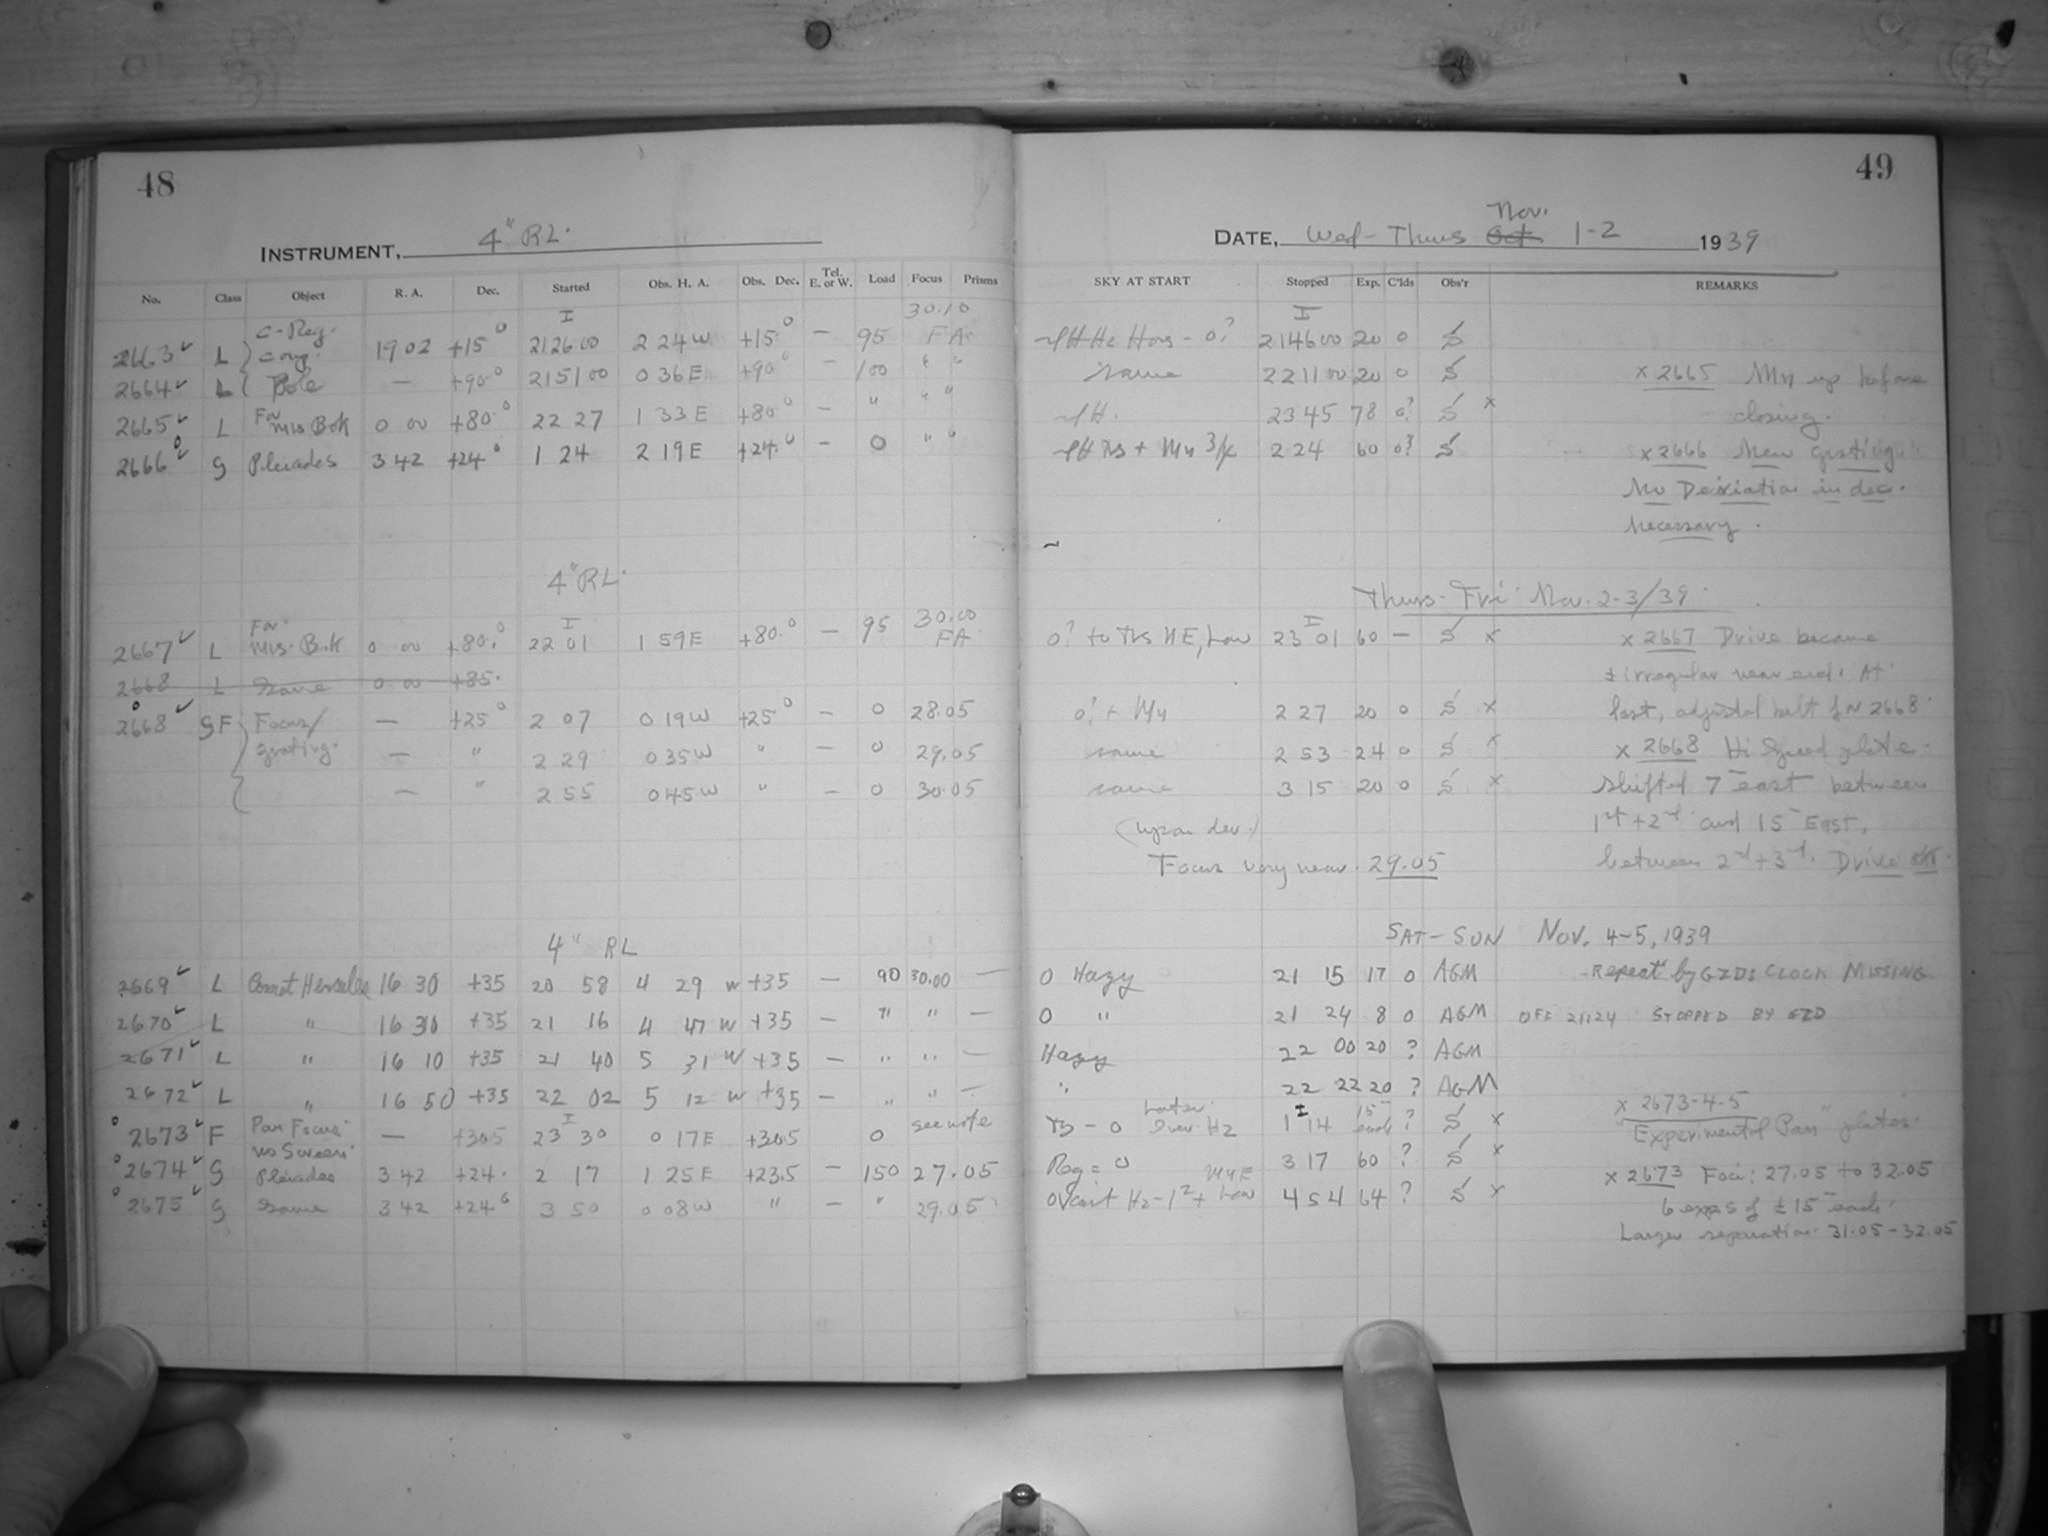 48
INSTRUMENT, 4" RL.
No. Class Object R. A. Dec. Started Obs. H. A. Obs. Dec. Tel. E. or W. Load Focus Prisms
I 30.10
2663 L C-Reg. 19 02 +15° 21 26 00 2 24 W +15° — 95 FA
2664 L Pole — +90° 21 51 00 0 36 E +90° — 100 " "
2665 L For Mis Bok 0 00 +80° 22 27 1 33 E +80° — " " "
2666 G Pleiades 3 42 +24° 1 24 2 19 E +24° — 0 " "
4" RL.
2667 L For Mis. Bok 0 00 +80.° I 22 01 1 59 E +80.° — 95 30.00 FA
2668 L Same 0 00 +85.
2668 GF Focus/ — +25° 2 07 0 19 W +25° — 0 28.05
grating. — " 2 29 0 35 W " — 0 29.05
— " 2 55 0 45 W " — 0 30.05
4" RL
2669 L Comet Hercules 16 30 +35 20 58 4 29 W +35 — 90 30.00 —
2670 L " 16 30 +35 21 16 4 47 W +35 — " " —
2671 L " 16 10 +35 21 40 5 31 W +35 — " " —
2672 L " 16 50 +35 22 02 5 12 W +35 — " " —
2673 F Pan Focus no Screen — +30.5 I 23 30 0 17 E +30.5 0 see note
2674 G Pleiades 3 42 +24. 2 17 1 25 E +23.5 — 150 27.05
2675 G Same 3 42 +24° 3 50 0 08 W " — " 29.05
49
DATE, Wed - Thurs Oct Nov. 1-2 1939
SKY AT START Stopped Exp. C'lds Obs'r REMARKS
I
Hors - 0? 21 46 00 20 0 S
same 22 11 00 20 0 S x 2665 up before
23 45 78 0? S x closing.
2 24 60 0? S x 2666 New grating
No Deviation in dec.
necessary.
Thurs - Fri Nov. 2-3/39
0? to NE, low I 23 01 60 — S x x 2667 Drive became
± irregular near end. At
2 27 20 0 S x last, adjusted belt for 2668
same 2 53 24 0 S x x 2668 Hi Speed plate.
same 3 15 20 0 S x Shifted 7 east between
(upon dev.) 1st + 2nd and 15 East,
Focus very near 29.05 between 2nd + 3rd. Drive
SAT - SUN NOV. 4-5, 1939
0 Hazy 21 15 17 0 AGM Repeat by GZDs CLOCK MISSING
0 " 21 24 8 0 AGM OFF 21 24 STOPPED BY GZD
Hazy 22 00 20 ? AGM
" 22 22 20 ? AGM
x 2673-4-5
- 0 Later over Hz I 1 14 15 each ? S x Experimental Pan plates.
Reg = 0 3 17 60 ? S x x 2673 Foci: 27.05 to 32.05
4 54 64 ? S x 6 exps of ± 15 each.
Larger separation 31.05 - 32.05